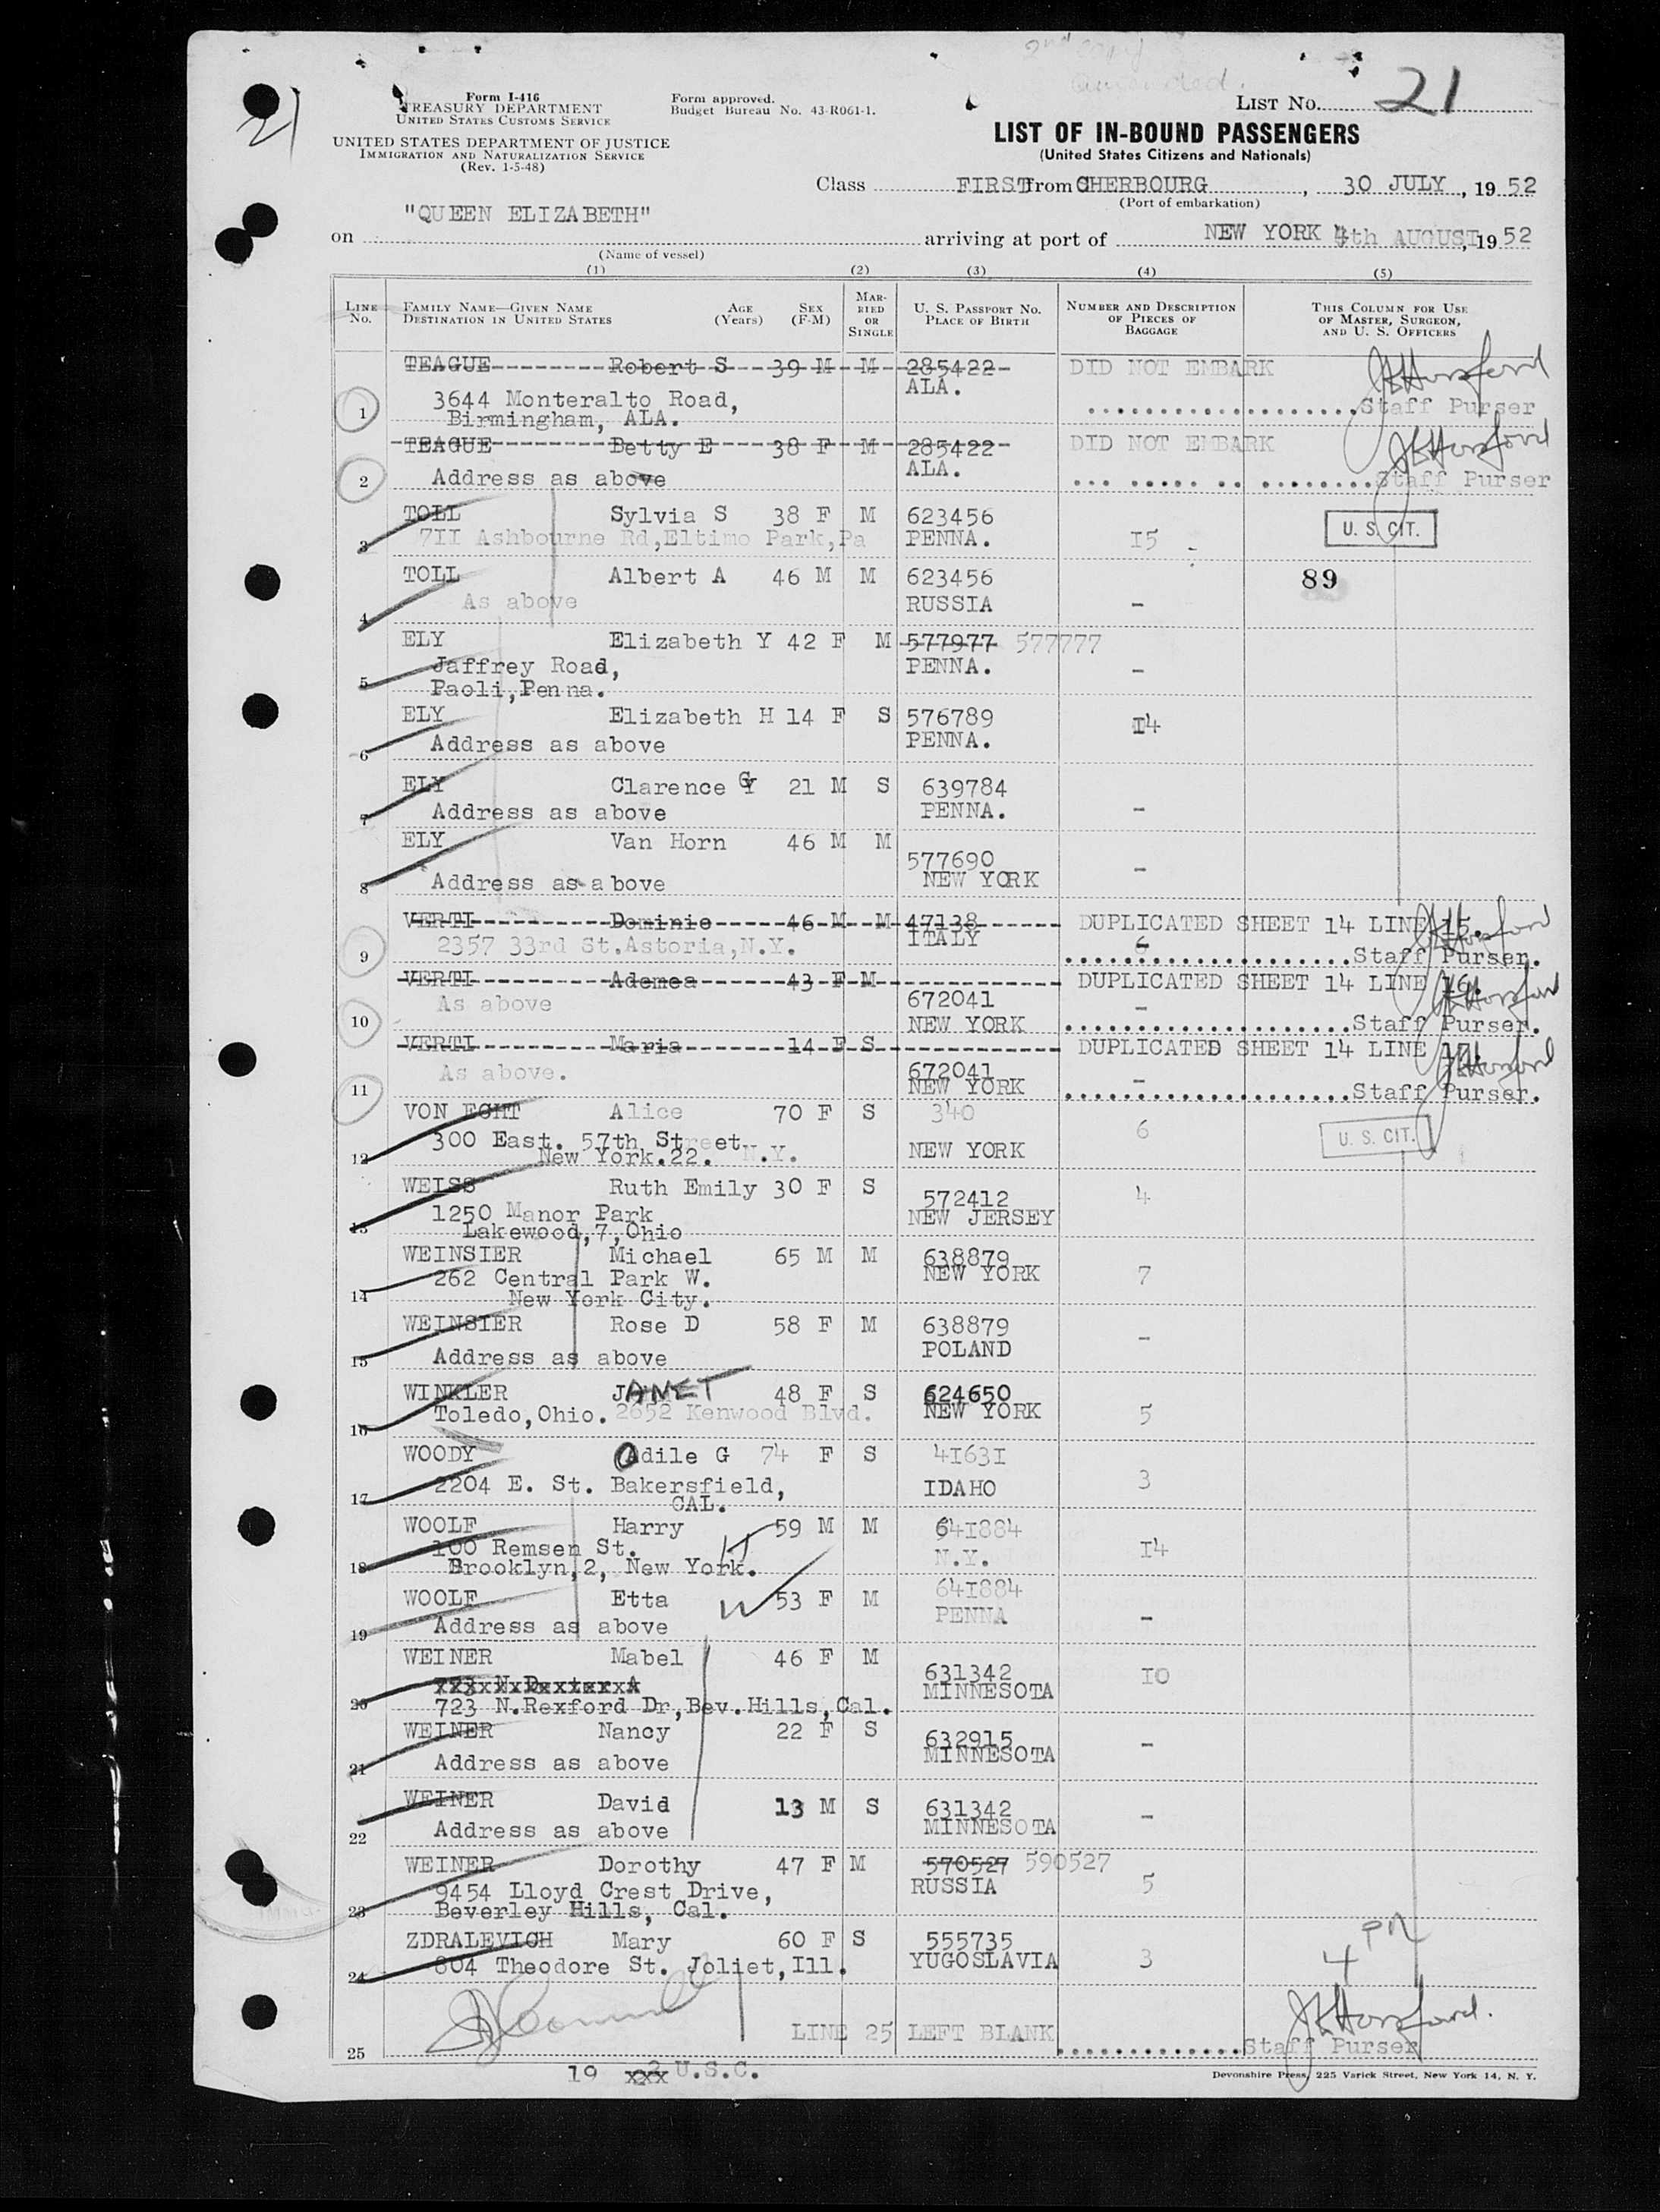 2nd copy
Amended.
21
Form I-416
TREASURY DEPARTMENT
UNITED STATES CUSTOMS SERVICE
UNITED STATES DEPARTMENT OF JUSTICE
IMMIGRATION AND NATURALIZATION SERVICE
(Rev. 1-5-48)
Form approved.
Budget Bureau No. 43-R061-1.
LIST No. 21
LIST OF IN-BOUND PASSENGERS
(United States Citizens and Nationals)
Class FIRST from CHERBOURG, 30 JULY, 19 52
(Port of embarkation)
on "QUEEN ELIZABETH" arriving at port of NEW YORK 4th AUGUST, 19 52
(Name of vessel)
(1) (2) (3) (4) (5)
LINE No.
FAMILY NAME—GIVEN NAME
DESTINATION IN UNITED STATES
AGE (Years)
SEX (F-M)
MARRIED OR SINGLE
U. S. PASSPORT NO.
PLACE OF BIRTH
NUMBER AND DESCRIPTION OF PIECES OF BAGGAGE
THIS COLUMN FOR USE OF MASTER, SURGEON, AND U. S. OFFICERS
TEAGUE Robert S 39 M M 285422 DID NOT EMBARK
ALA.
1 3644 Monteralto Road, Staff Purser
Birmingham, ALA.
TEAGUE Betty E 38 F M 285422 DID NOT EMBARK
ALA.
2 Address as above Staff Purser
TOLL Sylvia S 38 F M 623456 U. S. CIT.
3 7II Ashbourne Rd,Eltimo Park,Pa PENNA. I5 -
TOLL Albert A 46 M M 623456 89
4 As above RUSSIA -
ELY Elizabeth Y 42 F M 577977 577777
5 Jaffrey Road, PENNA. -
Paoli,Penna.
ELY Elizabeth H 14 F S 576789 I4
6 Address as above PENNA.
ELY Clarence G 21 M S 639784
7 Address as above PENNA. -
ELY Van Horn 46 M M
577690 -
8 Address as above NEW YORK
VERTI Dominic 46 M M 47138 DUPLICATED SHEET 14 LINE 15.
9 2357 33rd St.Astoria,N.Y. ITALY 6 Staff Purser.
VERTI Ademea 43 F M DUPLICATED SHEET 14 LINE 16.
As above 672041 -
10 NEW YORK Staff Purser.
VERTI Maria 14 F S DUPLICATED SHEET 14 LINE 17.
As above. 672041 -
11 NEW YORK Staff Purser.
VON EGHT Alice 70 F S 340 6 U. S. CIT.
12 300 East. 57th Street NEW YORK
New York.22. N.Y.
WEISS Ruth Emily 30 F S 572412 4
13 1250 Manor Park NEW JERSEY
Lakewood,7,Ohio
WEINSIER Michael 65 M M 638879
14 262 Central Park W. NEW YORK 7
New York City.
WEINSIER Rose D 58 F M 638879 -
15 Address as above POLAND
WINKLER JANET 48 F S 624650
16 Toledo,Ohio. 2652 Kenwood Blvd. NEW YORK 5
WOODY Odile G 74 F S 4I63I
17 2204 E. St. Bakersfield, IDAHO 3
CAL.
WOOLF Harry 59 M M 64I884
18 100 Remsen St. N.Y. I4
Brooklyn,2, New York.
WOOLF Etta 53 F M 64I884
19 Address as above PENNA -
WEINER Mabel 46 F M
631342 IO
20 MINNESOTA
723 N.Rexford Dr,Bev.Hills,Cal.
WEINER Nancy 22 F S 632915 -
21 Address as above MINNESOTA
WEINER David 13 M S 631342 -
22 Address as above MINNESOTA
WEINER Dorothy 47 F M 570527 590527
23 9454 Lloyd Crest Drive, RUSSIA 5
Beverley Hills, Cal.
ZDRALEVICH Mary 60 F S 555735
24 804 Theodore St. Joliet,Ill. YUGOSLAVIA 3
25 LINE 25 LEFT BLANK Staff Purser
19 2 U.S.C.
Devonshire Press, 225 Varick Street, New York 14, N. Y.